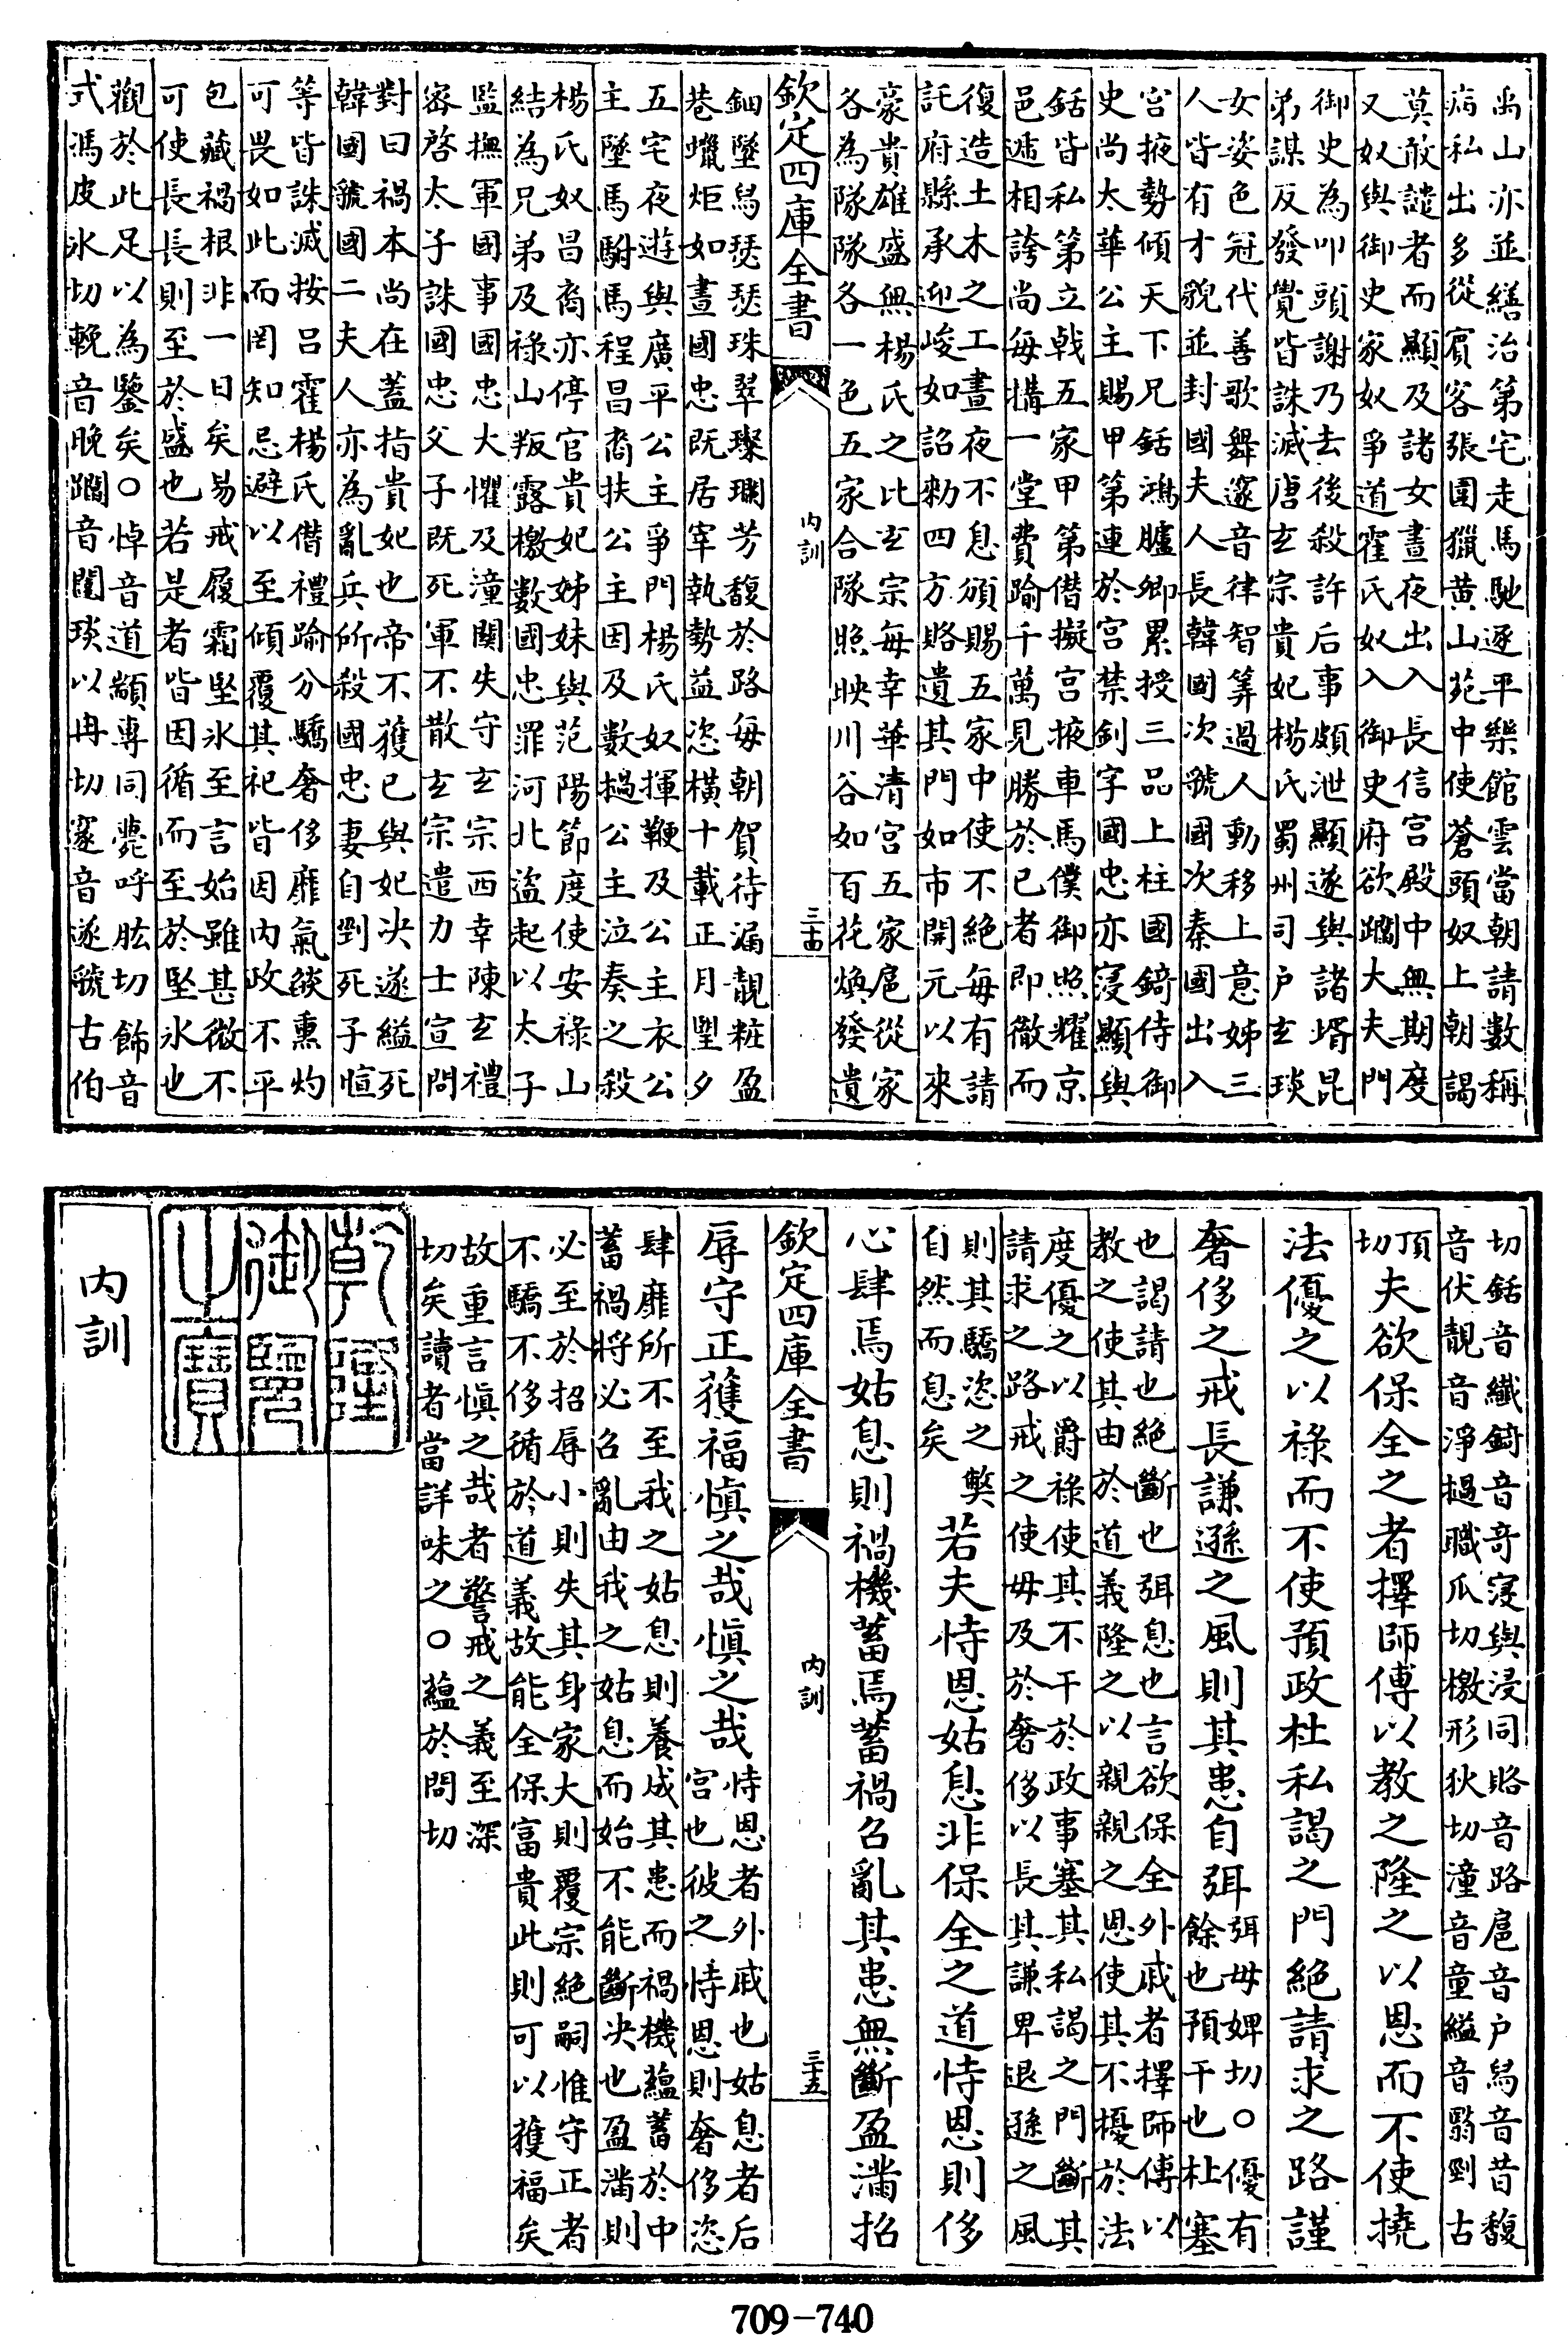 禹山亦並繕治第宅走馬馳逐平樂館雲當朝請數稱
病私出多從賓客張圍獵黃山苑中使蒼頭奴上朝謁
莫敢譴者而顯及諸女晝夜出入長信宮殿中無期度
又奴與御史家奴爭道霍氏奴入御史府欲躢大夫門
御史為叩頭謝乃去後殺許后事頗泄顯遂與諸壻昆
弟謀反發覺皆誅滅唐玄宗貴妃楊氏蜀州司戶玄琰
女姿色冠代善歌舞邃音律智筭過人動移上意姊三
人皆有才貌並封國夫人長韓國次虢國次秦國出入
宮掖勢傾天下兄銛鴻臚卿累授三品上柱國錡侍御
史尚太華公主賜甲第連於宮禁釗字國忠亦寖顯與
銛皆私第立戟五家甲第僭擬宮掖車馬僕御照耀京
邑遞相誇尚每搆一堂費踰千萬見勝於已者即徹而
復造土木之工晝夜不息頒賜五家中使不絕每有請
託府縣承迎峻如詔勑四方賂遺其門如市開元以來
豪貴雄盛無楊氏之比玄宗每幸華清宮五家扈從家
各為隊隊各一色五家合隊照映川谷如百花煥發遺
欽定四庫全書
內訓
三十四
鈿墜舄瑟瑟珠翠璨瓓芳馥於路每朝賀待漏靚粧盈
巷蠟炬如晝國忠既居宰執勢益恣橫十載正月朢夕
五宅夜遊與廣平公主爭門楊氏奴揮鞭及公主衣公
主墜馬駙馬程昌裔扶公主因及數撾公主泣奏之殺
楊氏奴昌裔亦停官貴妃姊妹與范陽節度使安祿山
結為兄弟及祿山叛露檄數國忠罪河北盜起以太子
監撫軍國事國忠大懼及潼關失守玄宗西幸陳玄禮
密啓太子誅國忠父子既死軍不散玄宗遣力士宣問
對曰禍本尚在蓋指貴妃也帝不獲已與妃决遂縊死
韓國虢國二夫人亦為亂兵所殺國忠妻自剄死子暄
等皆誅滅按呂霍楊氏僭禮踰分驕奢侈靡氣燄熏灼
可畏如此而罔知忌避以至傾覆其祀皆因內政不平
包藏禍根非一日矣易戒履霜堅氷至言始雖甚微不
可使長長則至於盛也若是者皆因循而至於堅氷也
觀於此足以為鑒矣○悼音道顓專同薨呼肱切飾音
式馮皮氷切輓音晚躢音闥琰以冉切邃音遂虢古伯
切銛音纖錡音奇寖與浸同賂音路扈音戶舄音昔馥
音伏靚音淨撾職瓜切檄形狄切潼音童縊音翳剄古
頂
切夫欲保全之者擇師傅以教之隆之以恩而不使撓
法優之以祿而不使預政杜私謁之門絕請求之路謹
奢侈之戒長謙遜之風則其患自弭弭毋婢切○優有
餘也預干也杜塞
也謁請也絕斷也弭息也言欲保全外戚者擇師傅以
教之使其由於道義隆之以親親之恩使其不擾於法
度優之以爵祿使其不干於政事塞其私謁之門斷其
請求之路戒之使毋及於奢侈以長其謙畀退遜之風
則其驕恣之弊
自然而息矣若夫恃恩姑息非保全之道恃恩則侈
心肆焉姑息則禍機蓄焉蓄禍召亂其患無斷盈滿招
欽定四庫全書
內訓
三十五
辱守正獲福慎之哉慎之哉恃恩者外戚也姑息者后
宮也彼之恃恩則奢侈恣
肆靡所不至我之姑息則養成其患而禍機蘊蓄於中
蓄禍將必召亂由我之姑息而始不能斷决也盈滿則
必至於招辱小則失其身家大則覆宗絕嗣惟守正者
不驕不侈循於道義故能全保富貴此則可以獲福矣
故重言慎之哉者警戒之義至深
切矣讀者當詳味之○蘊於問切
乾隆
御覽
之寶
內訓
709-740